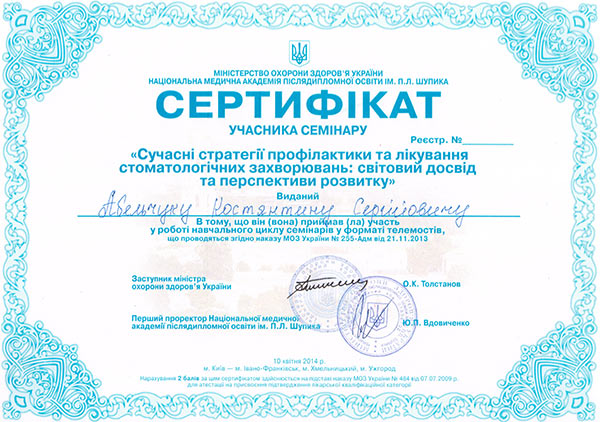 МІНІСТЕРСТВО ОХОРОНИ ЗДОРОВ'Я УКРАЇНИ
НАЦІОНАЛЬНА МЕДИЧНА АКАДЕМІЯ ПІСЛЯДИПЛОМНОЇ ОСВІТИ ІМ. П.Л. ШУПИКА
СЕРТИФІКАТ
УЧАСНИКА СЕМІНАРУ
Реєстр. №________
«Сучасні стратегії профілактики та лікування
стоматологічних захворювань: світовий досвід
та перспективи розвитку»
Виданий
Абельчуку Костянтину Сергійовичу
В тому, що він (вона) приймав (ла) участь
у роботі навчального циклу семінарів у форматі телемостів,
що проводяться згідно наказу МОЗ України № 255-Адм від 21.11.2013
Заступник міністра
охорони здоров'я України
О.К. Толстанов
Перший проректор Національної медичної
академії післядипломної освіти ім. П.Л. Шупика
Ю.П. Вдовиченко
10 квітня 2014 р.
м. Київ — м. Івано-Франківськ, м. Хмельницький, м. Ужгород
Нарахування 2 балів за цим сертифікатом здійснюється на підставі наказу МОЗ України № 484 від 07.07.2009 р.
для атестації на присвоєння підтвердження лікарської кваліфікаційної категорії